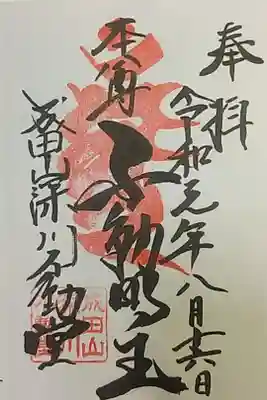 奉拝
令和元年八月十六日
本尊
不動明王
成田山深川不動堂
成田山